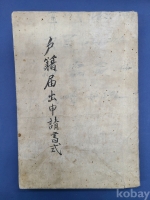 戸籍届出申請書式
kobay